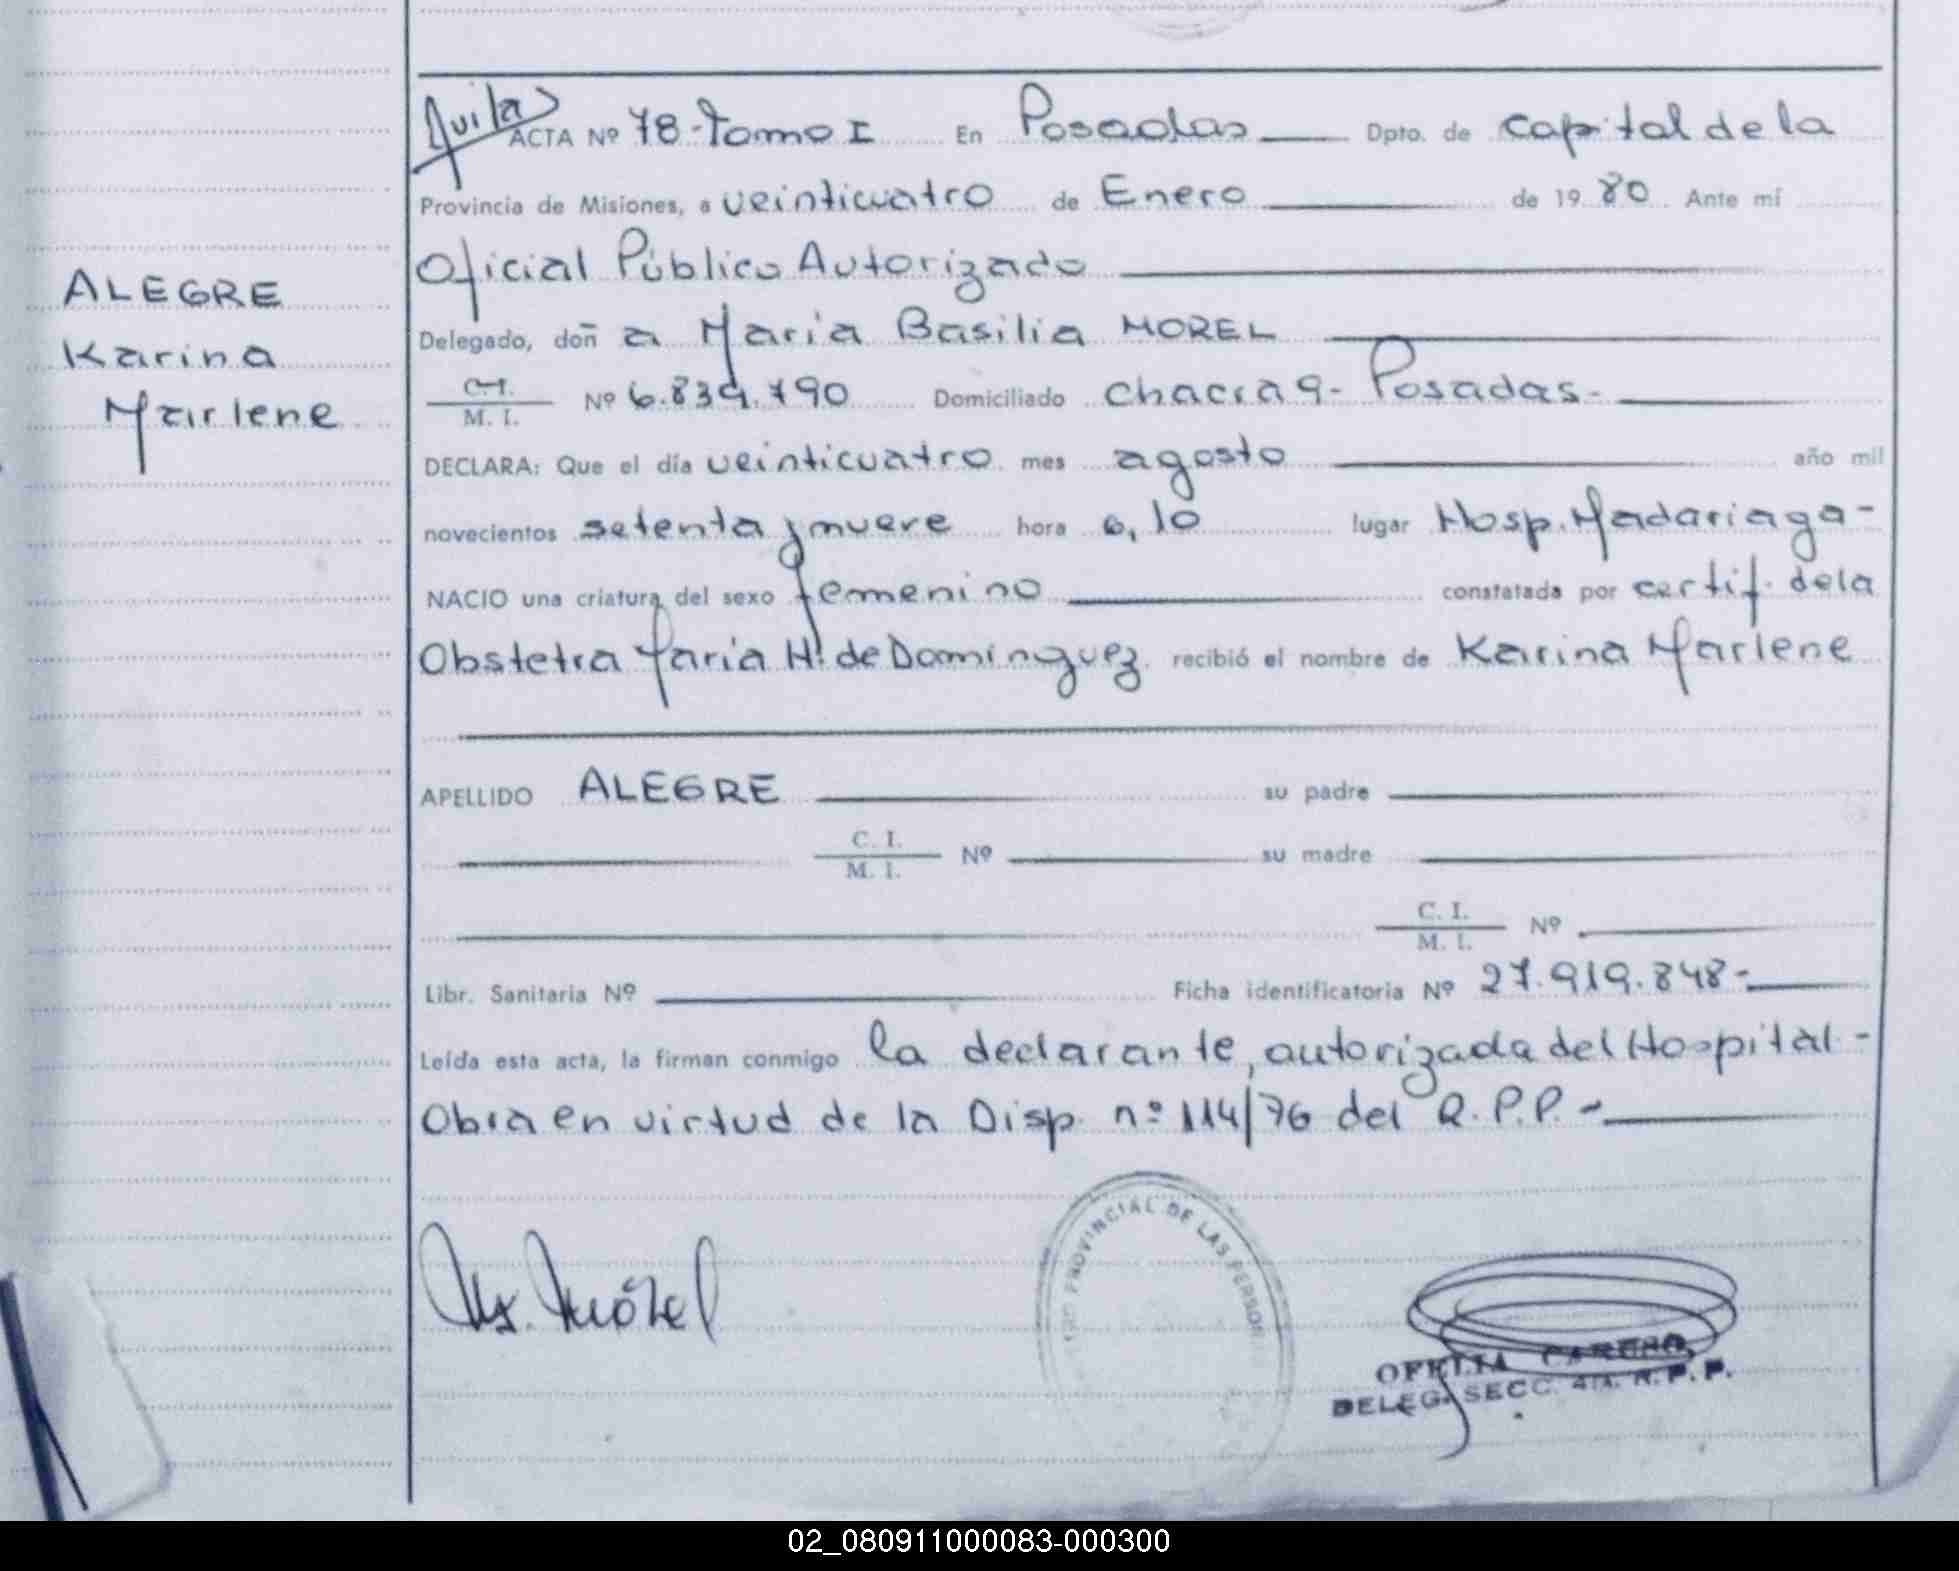 Avila
ACTA Nº 78-Tomo I En Posadas Dpto. de capital de la
Provincia de Misiones, a veinticuatro de Enero de 19 80 Ante mí
Oficial Público Autorizado
ALEGRE
Karina
Marlene
Delegado, doñ a Maria Basilia MOREL
C.I.
M. I. Nº 6.839.790 Domiciliado chacra 9- Posadas-
DECLARA: Que el día veinticuatro mes agosto año mil
novecientos setenta y nueve hora 6,10 lugar Hosp. Madariaga-
NACIO una criatura del sexo femenino constatada por certif. de la
Obstetra Maria H. de Dominguez recibió el nombre de Karina Marlene
APELLIDO ALEGRE su padre
C. I.
M. I. Nº su madre
C. I.
M. I. Nº
Libr. Sanitaria Nº Ficha identificatoria Nº 27.919.848-
Leída esta acta, la firman conmigo la declarante, autorizada del Hospital-
Obra en virtud de la Disp. nº 114/76 del R.P.P.-
PROVINCIAL DE LAS PERSONAS
M. Morel
OFELIA
DELEG. SECC. 4ta. R.P.P.
02_080911000083-000300